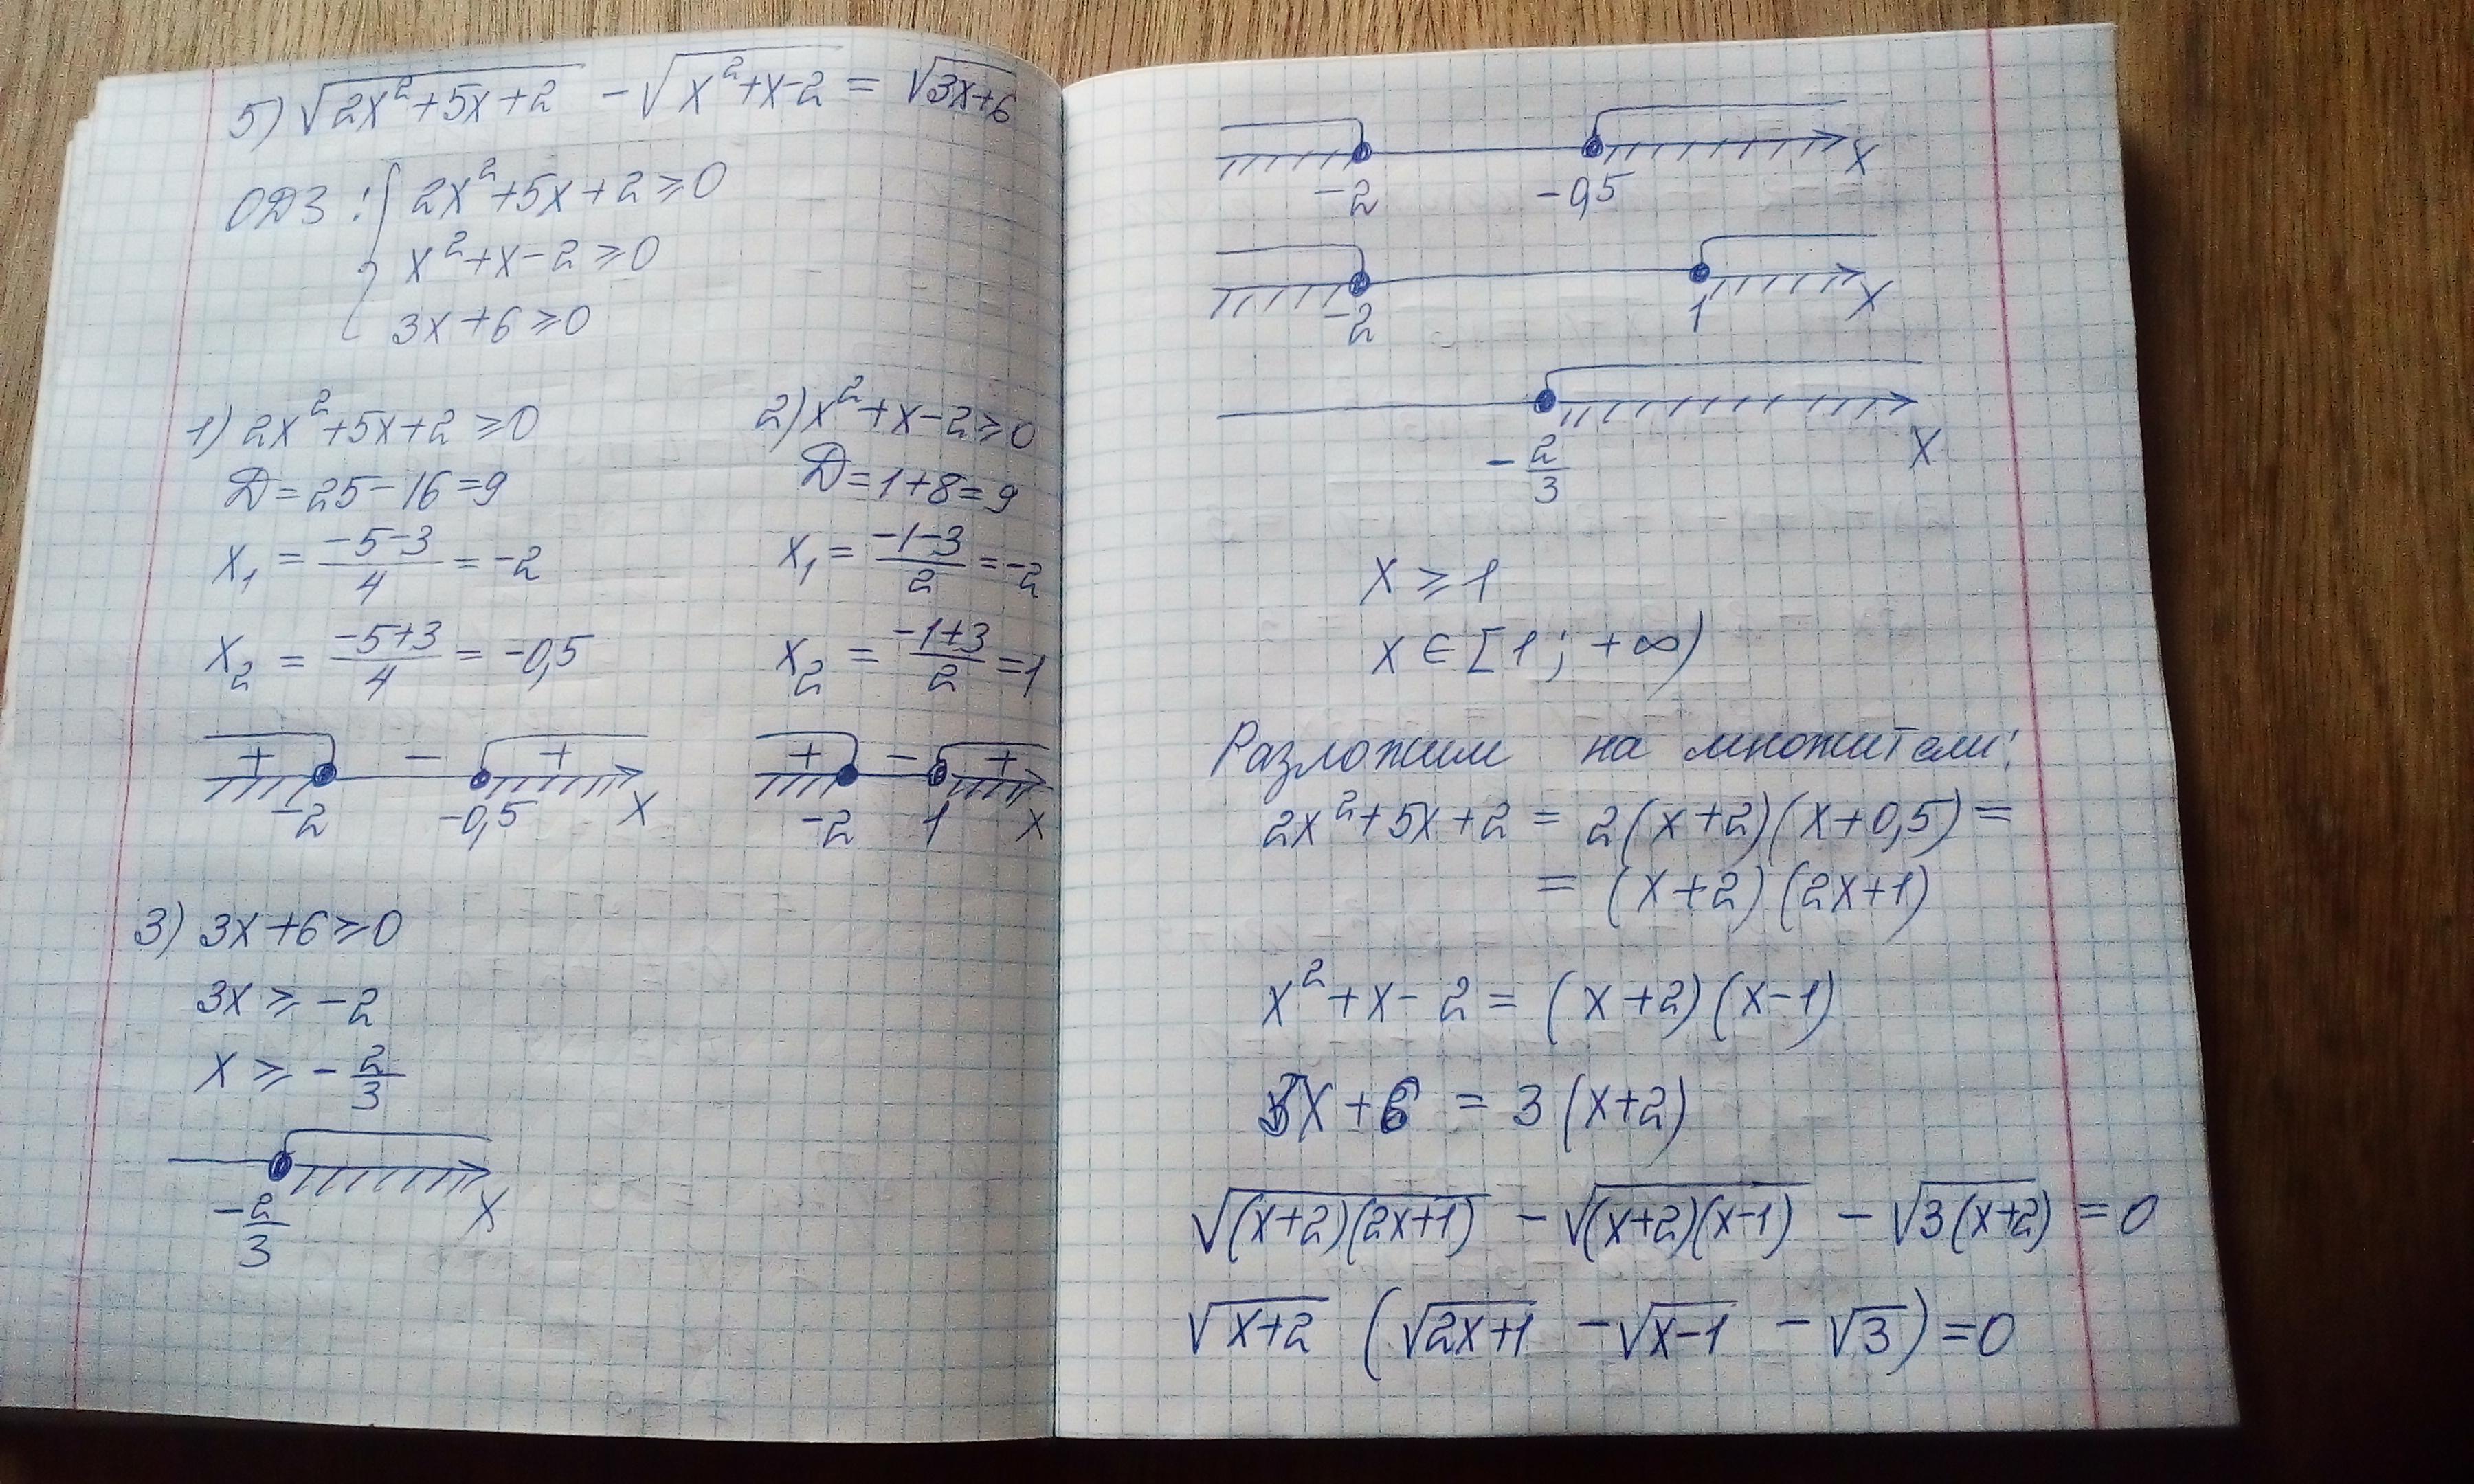 5) √(2x²+5x+2) - √(x²+x-2) = √(3x+6)
ОДЗ: { 2x²+5x+2 ≥ 0
x²+x-2 ≥ 0
3x+6 ≥ 0
1) 2x²+5x+2 ≥ 0
D = 25-16 = 9
x₁ = (-5-3)/4 = -2
x₂ = (-5+3)/4 = -0,5
+ - +
-2 -0,5 x
2) x²+x-2 ≥ 0
D = 1+8 = 9
x₁ = (-1-3)/2 = -2
x₂ = (-1+3)/2 = 1
+ - +
-2 1 x
3) 3x+6 ≥ 0
3x ≥ -2
x ≥ -2/3
-2/3 x
-2 -0,5 x
-2 1 x
-2/3 x
x ≥ 1
x ∈ [1; +∞)
Разложим на множители:
2x²+5x+2 = 2(x+2)(x+0,5) =
= (x+2)(2x+1)
x²+x-2 = (x+2)(x-1)
3x+6 = 3(x+2)
√((x+2)(2x+1)) - √((x+2)(x-1)) - √(3(x+2)) = 0
√(x+2) (√(2x+1) - √(x-1) - √3) = 0